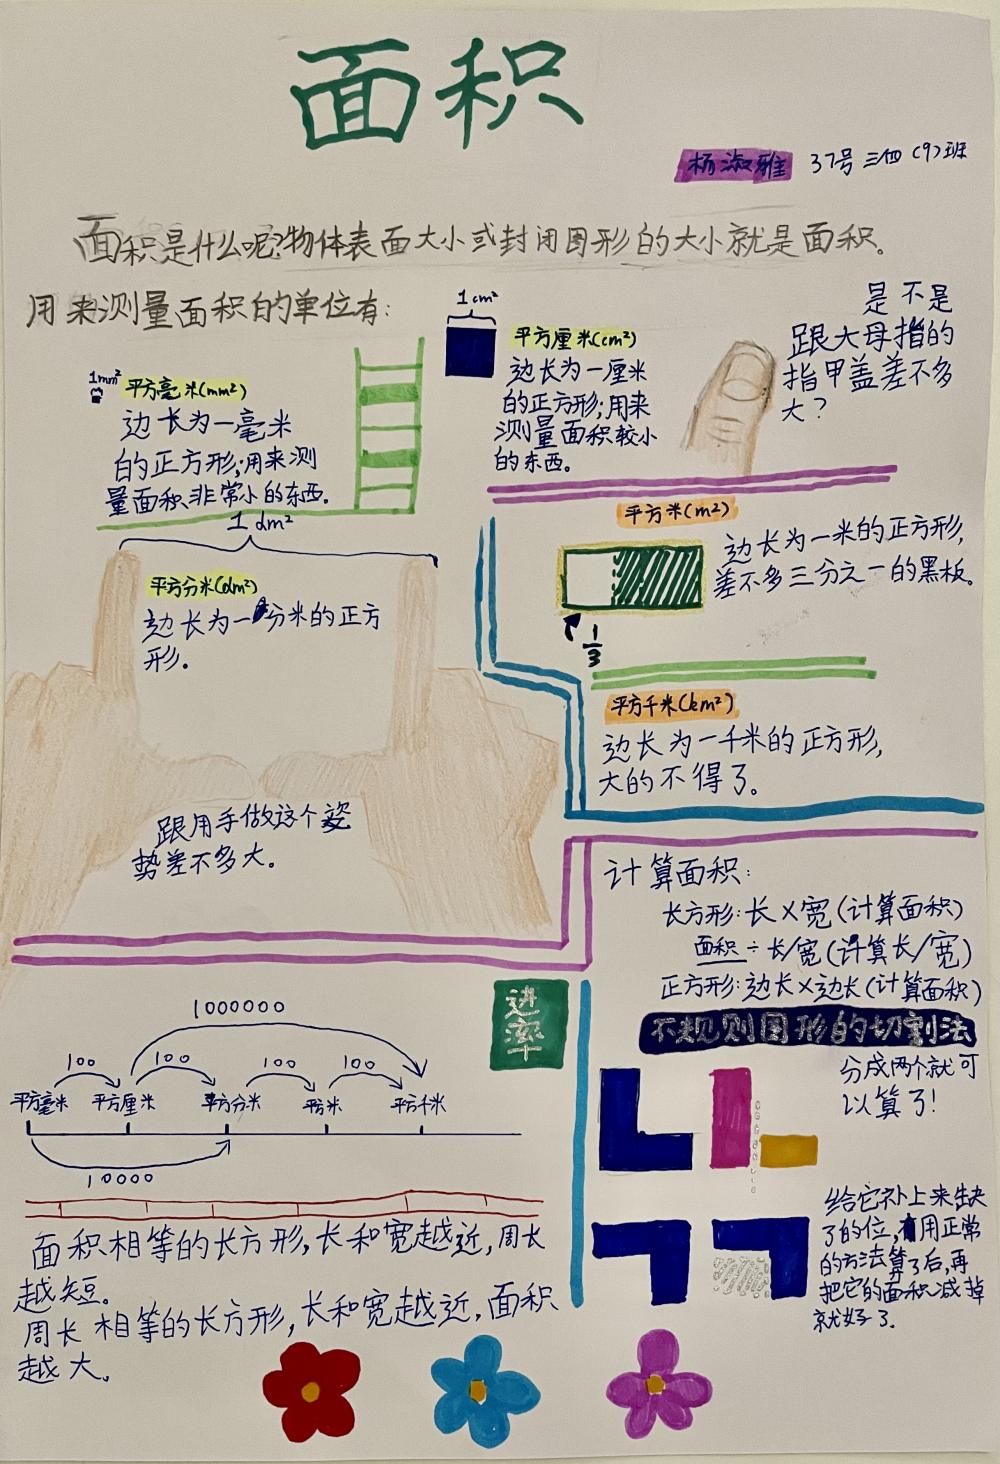 面积
杨淑雅 37号 三四(9)班
面积是什么呢?物体表面大小或封闭图形的大小就是面积。
用来测量面积的单位有:
1mm²
平方毫米(mm²)
边长为一毫米
的正方形;用来测
量面积非常小的东西.
1cm²
平方厘米(cm²)
边长为一厘米
的正方形;用来
测量面积较小
的东西。
是不是
跟大母指的
指甲盖差不多
大?
1dm²
平方分米(dm²)
边长为一分米的正方
形.
跟用手做这个姿
势差不多大。
平方米(m²)
边长为一米的正方形,
差不多三分之一的黑板。
1/3
平方千米(km²)
边长为一千米的正方形,
大的不得了。
计算面积:
长方形:长×宽(计算面积)
面积÷长/宽(计算长/宽)
正方形:边长×边长(计算面积)
不规则图形的切割法
分成两个就可
以算了!
给它补上来缺
了的位,用正常
的方法算了后,再
把它的面积减掉
就好了.
进率
1000000
100 100 100 100
平方毫米 平方厘米 平方分米 平方米 平方千米
10000
面积相等的长方形,长和宽越近,周长
越短。
周长相等的长方形,长和宽越近,面积
越大。